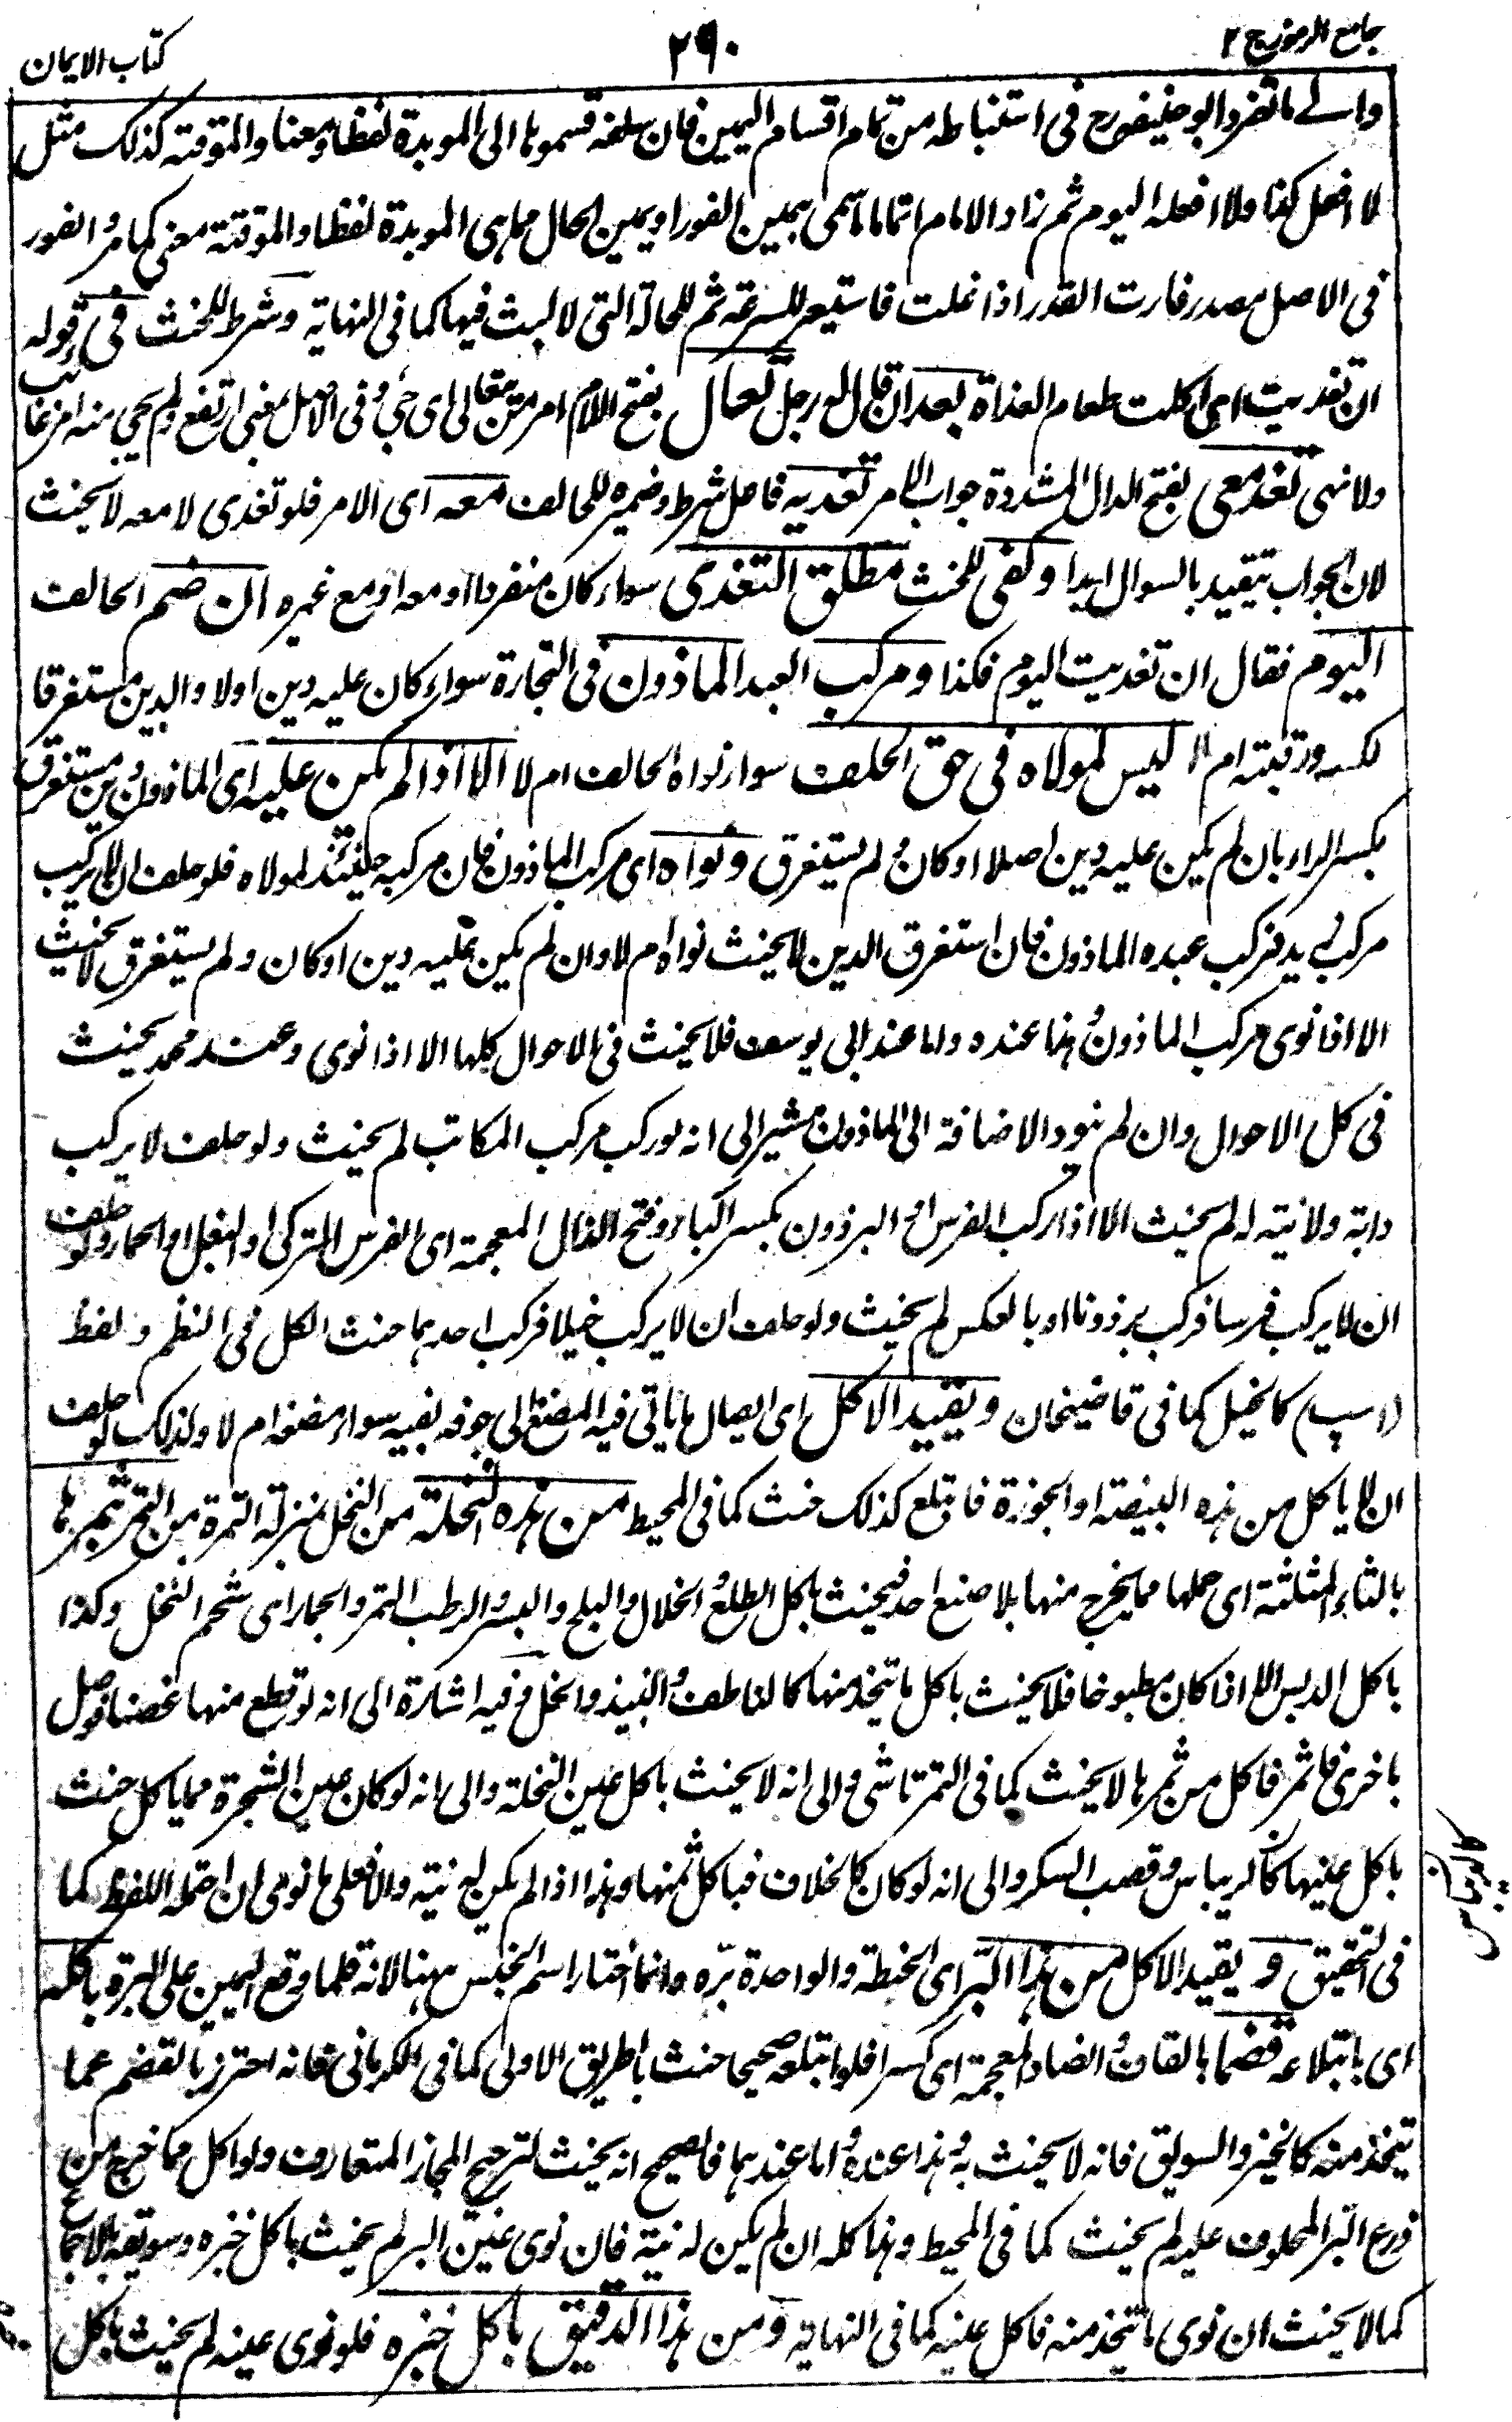 جامع الرموز ج ٢
٢٩٠
كتاب الايمان
والى ما تفرد ابو حنيفة رح فى استنباطه من تمام اقسام اليمين فان سلفه قسموها الى الموبدة لفظا ومعنا والموقتة كذلك مثل
لا افعل كذا ولا افعله اليوم ثم زاد الامام اتماما ما سمى بيمين الفور او يمين الحال مما هى الموبدة لفظا والموقتة معنى كما مر والفور
فى الاصل مصدر فارت القدر اذا غلت فاستعير للسرعة ثم للحالة التى لا لبث فيها كما فى النهاية وشرط للحنث فى قوله
ان تغديت اى اكلت طعام الغداة بعد ان قال له رجل تعال بفتح اللام امر من تعالى اى جئ وفى الاصل بمعنى ارتفع ولم يجئ منه امر غائب
ولا نهى تغد معى بفتح الدال المشددة جواب الامر تغديه فاعل شرط وضميره للحالف معه اى الامر فلو تغدى لا معه لا يحنث
لان الجواب يتقيد بالسوال ابدا وكفى للحنث مطلق التغدى سواء كان منفردا او معه او مع غيره ان ضم الحالف
اليوم فقال ان تغديت اليوم فكذا ومركب العبد الماذون فى التجارة سواء كان عليه دين اولا والدين مستغرقا
لكسبه ورقبته ام لا ليس لمولاه فى حق الحلف سواء نواه الحالف ام لا الا اذا لم يكن عليه اى الماذون دين مستغرق
بكسر الراء بان لم يكن عليه دين اصلا او كان ولم يستغرق ونواه اى مركب الماذون فان مركبه حينئذ لمولاه فلو حلف ان لا يركب
مركب زيد فركب عبده الماذون فان استغرق الدين لا يحنث نواه ام لا وان لم يكن عليه دين او كان ولم يستغرق لا يحنث
الا اذا نوى مركب الماذون وهذا عنده واما عند ابى يوسف فلا يحنث فى الاحوال كلها الا اذا نوى وعند محمد يحنث
فى كل الاحوال وان لم ينو والاضافة الى الماذون مشير الى انه لو ركب مركب المكاتب لم يحنث ولو حلف لا يركب
دابة ولا نية له لم يحنث الا اذا ركب الفرس او البرذون بكسر الباء وفتح الذال المعجمة اى الفرس التركى او البغل او الحمار ولو حلف
ان لا يركب فرسا فركب برذونا او بالعكس لم يحنث ولو حلف ان لا يركب خيلا فركب احدهما حنث الكل فى النظم ولفظ
(اسپ) كالخيل كما فى قاضيخان ويقيد الاكل اى ايصال ما ياتى فيه المضغ الى جوفه بفيه سواء مضغه ام لا ولذلك لو حلف
ان لا ياكل من هذه البيضة او الجوزة فابتلع كذلك حنث كما فى المحيط من هذه النخلة من النخل بمنزلة التمرة من التمر بثمرها
بالثاء المثلثة اى حملها مما يخرج منها بلا صنع احد فيحنث باكل الطلع والخلال والبلح والبسر والرطب التمر والجمار اى شحم النخل وكذا
باكل الدبس الا اذا كان مطبوخا فلا يحنث باكل ما يتخذ منها كالناطف والنبيذ والخل وفيه اشارة الى انه لو قطع منها غصنا فوصل
باخرى فاثمر فاكل من ثمرها لا يحنث كما فى التمرتاشى والى انه لا يحنث باكل عين النخلة والى انه لو كان عين الشجرة مما ياكل حنث
باكل عينها كالريباس وقصب السكر والى انه لو كان كالخلاف فباكل ثمنها وهذا اذا لم يكن له نية والا فعلى ما نوى ان احتمله اللفظ كما
فى التحقيق ويقيد الاكل من هذا البر اى الحنطة والواحدة برة وانما اختار اسم الجنس ههنا لانه قلما وقع اليمين على البرة باكله
اى بابتلاعه قضما بالقاف والضاد المعجمة اى كسرا فلو ابتلعه صحيحا حنث بالطريق الاولى كما فى الكرمانى فانه احترز بالقضم عما
يتخذ منه كالخبز والسويق فانه لا يحنث به وهذا عنده واما عندهما فالصحيح انه يحنث لترجيح المجاز المتعارف ولو اكل مما خرج من
زرع البر المحلوف عليه لم يحنث كما فى المحيط وهذا كله ان لم يكن له نية فان نوى عين البر لم يحنث باكل خبزه وسويقه بالاجماع
كما لا يحنث ان نوى ما يتخذ منه فاكل عينه كما فى النهاية ومن هذا الدقيق باكل خبزه فلو نوى عينه لم يحنث باكل